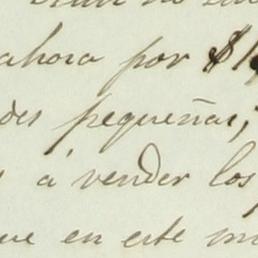 ahora por $1
des pequeñas,
á vender los
ue en este m